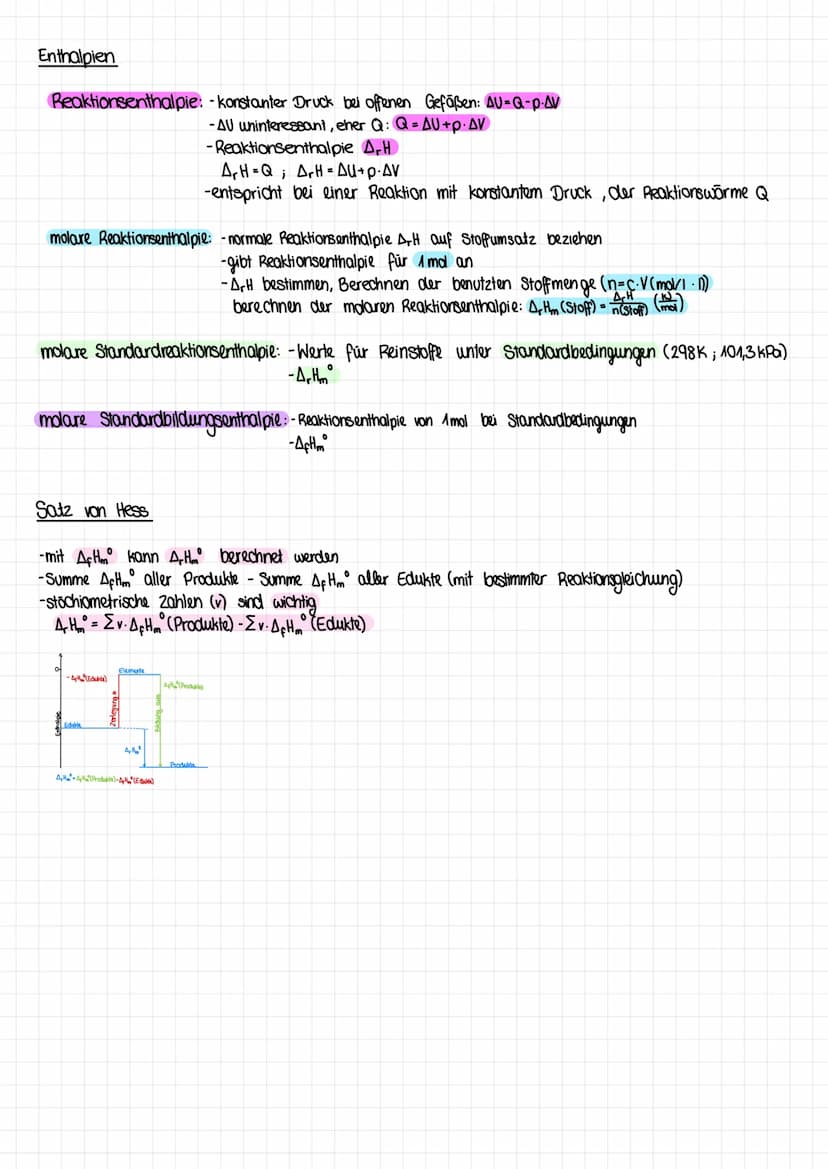 Enthalpien
Reaktionsenthalpie: - konstanter Druck bei offenen Gefäßen: ΔU=Q-p·ΔV
- ΔU uninteressant, eher Q: Q = ΔU+p·ΔV
- Reaktionsenthalpie ΔrH
ΔrH = Q ; ΔrH = ΔU+p·ΔV
- entspricht bei einer Reaktion mit konstantem Druck, der Reaktionswärme Q
molare Reaktionsenthalpie: - normale Reaktionsenthalpie ΔrH auf Stoffumsatz beziehen
- gibt Reaktionsenthalpie für 1 mol an
- ΔrH bestimmen, Berechnen der benutzten Stoffmenge (n=c·V(mol/l · l))
berechnen der molaren Reaktionsenthalpie: ΔrHm (Stoff) = ΔrH/n(Stoff) (kJ/mol)
molare Standardreaktionsenthalpie: - Werte für Reinstoffe unter Standardbedingungen (298K ; 101,3 kPa)
- ΔrHm°
molare Standardbildungsenthalpie: - Reaktionsenthalpie von 1mol bei Standardbedingungen
- ΔfHm°
Satz von Hess
- mit ΔfHm° kann ΔrHm° berechnet werden
- Summe ΔfHm° aller Produkte - Summe ΔfHm° aller Edukte (mit bestimmter Reaktionsgleichung)
- stöchiometrische Zahlen (v) sind wichtig
ΔrHm° = Σv·ΔfHm° (Produkte) - Σv·ΔfHm° (Edukte)
0
Elemente
- ΔfHm° (Edukte)
ΔfHm° (Produkte)
Zerlegung in
Bildung aus
Enthalpie
Edukte
ΔrHm°
Produkte
ΔrHm° = ΔfHm° (Produkte) - ΔfHm° (Edukte)